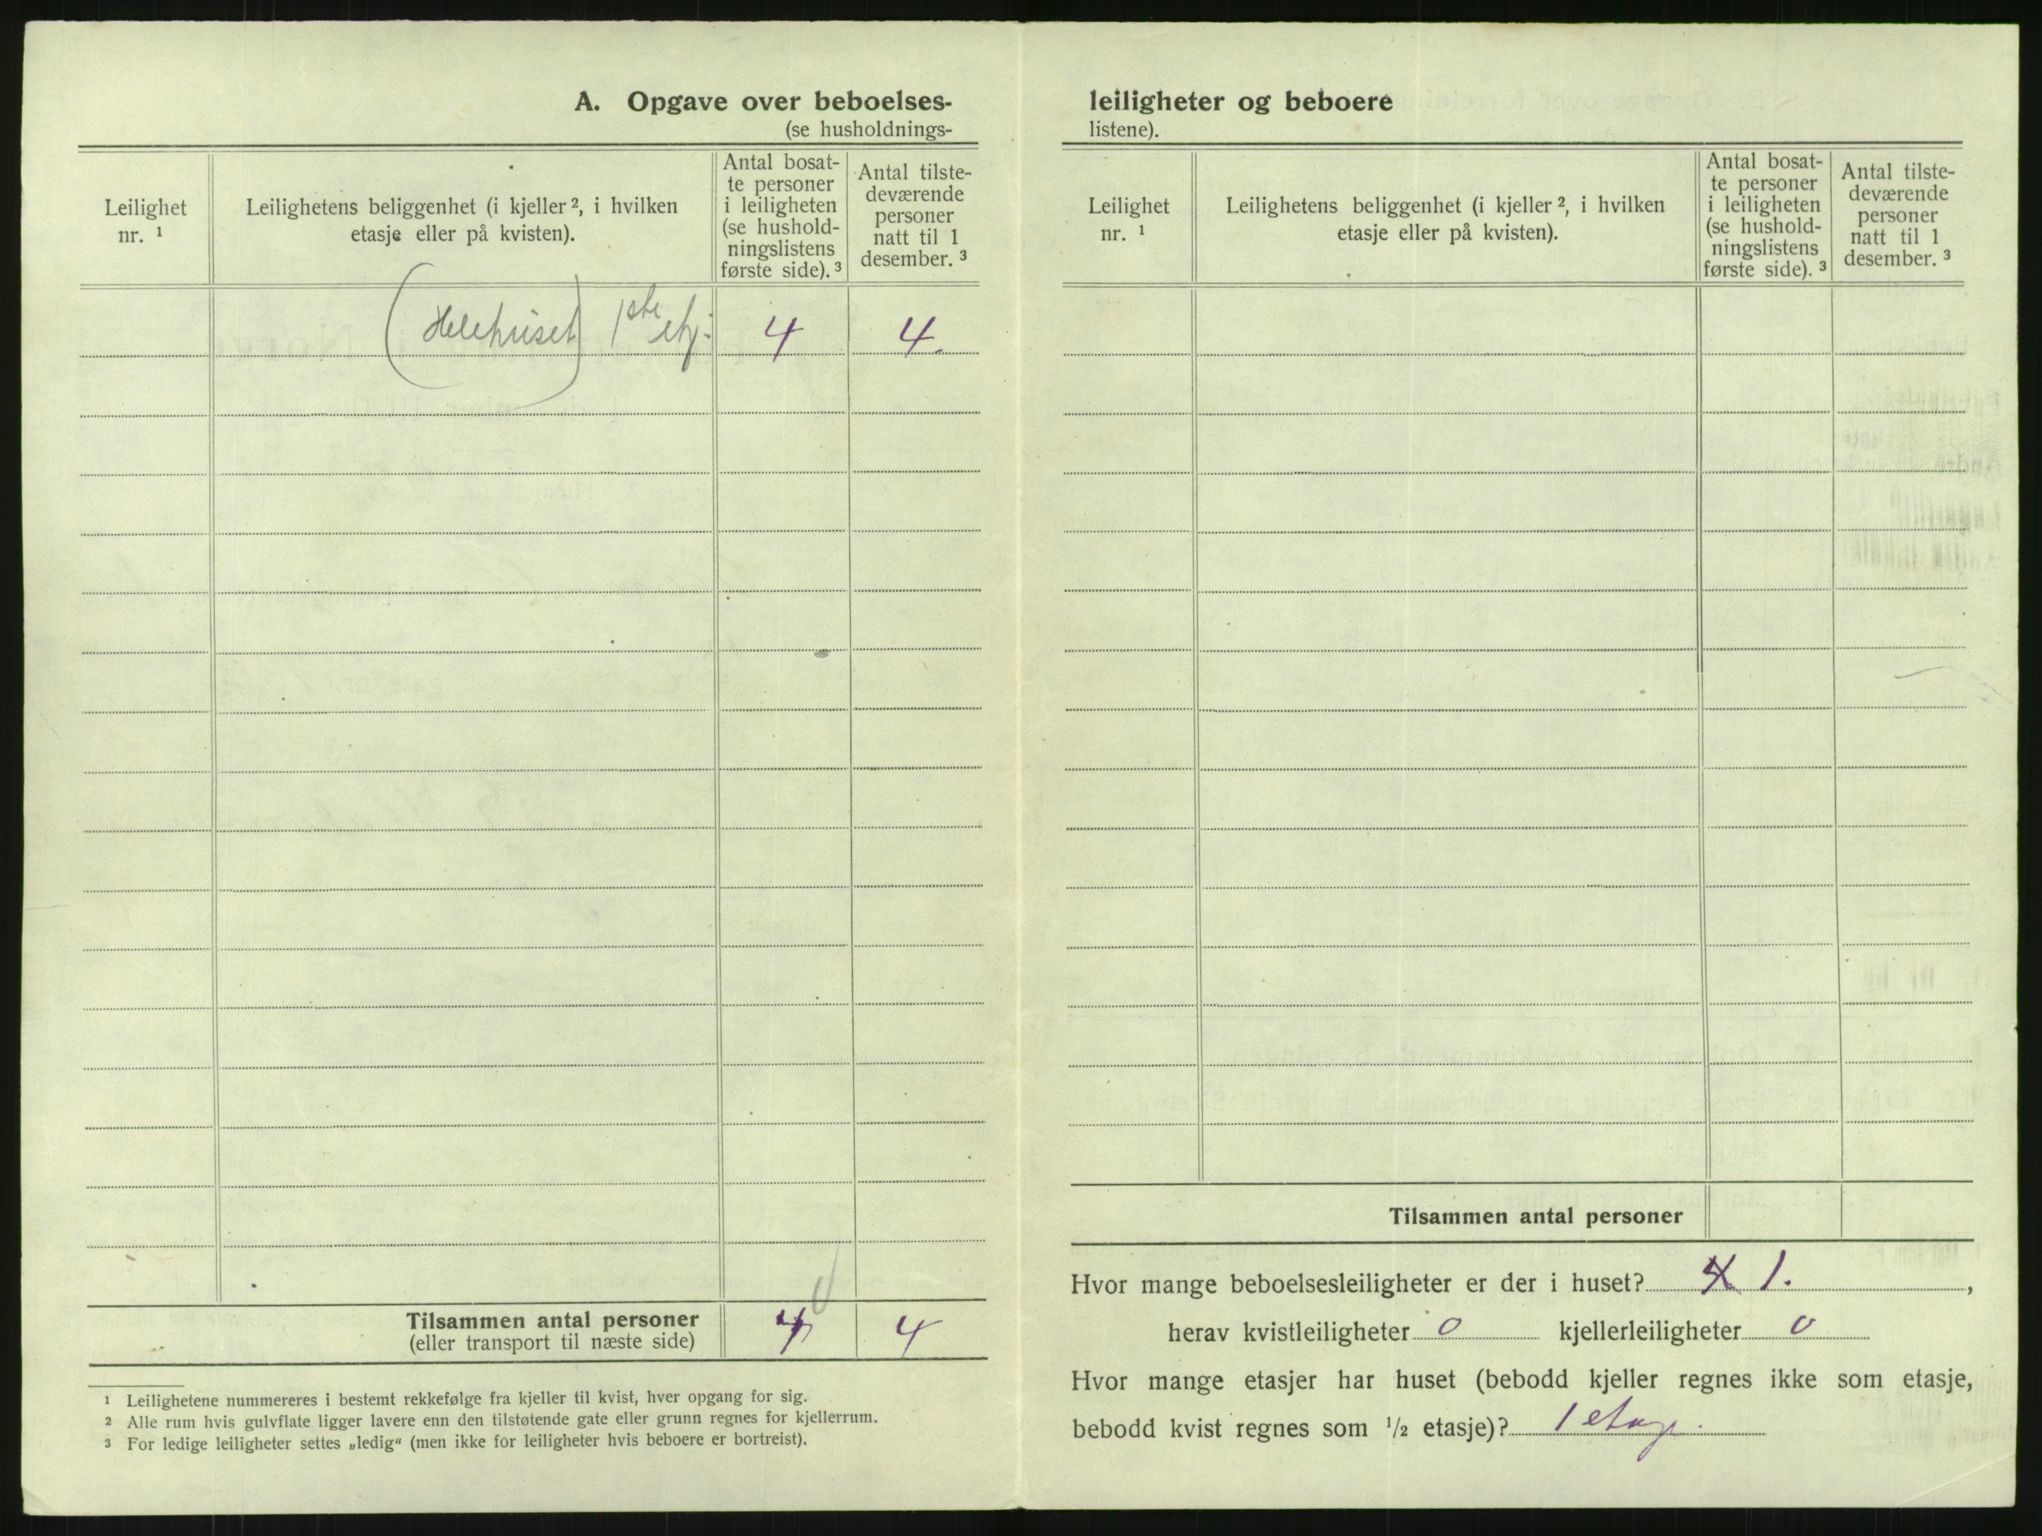 A. Opgave over beboelses-
(se husholdnings-
Leilighet
nr. ¹
Leilighetens beliggenhet (i kjeller ², i hvilken
etasje eller på kvisten).
Antal bosat-
te personer
i leiligheten
(se hushold-
ningslistens
første side). ³
Antal tilste-
deværende
personer
natt til 1
desember. ³
(Helehuset) 1ste etj. 4 4.
Tilsammen antal personer 4 4
(eller transport til næste side)
¹ Leilighetene nummereres i bestemt rekkefølge fra kjeller til kvist, hver opgang for sig.
² Alle rum hvis gulvflate ligger lavere enn den tilstøtende gate eller grunn regnes for kjellerrum.
³ For ledige leiligheter settes „ledig“ (men ikke for leiligheter hvis beboere er bortreist).
leiligheter og beboere
listene).
Leilighet
nr. ¹
Leilighetens beliggenhet (i kjeller ², i hvilken
etasje eller på kvisten).
Antal bosat-
te personer
i leiligheten
(se hushold-
ningslistens
første side). ³
Antal tilste-
deværende
personer
natt til 1
desember. ³
Tilsammen antal personer
Hvor mange beboelsesleiligheter er der i huset? 4 1. ,
herav kvistleiligheter 0 kjellerleiligheter 0
Hvor mange etasjer har huset (bebodd kjeller regnes ikke som etasje,
bebodd kvist regnes som ½ etasje)? 1 etage.